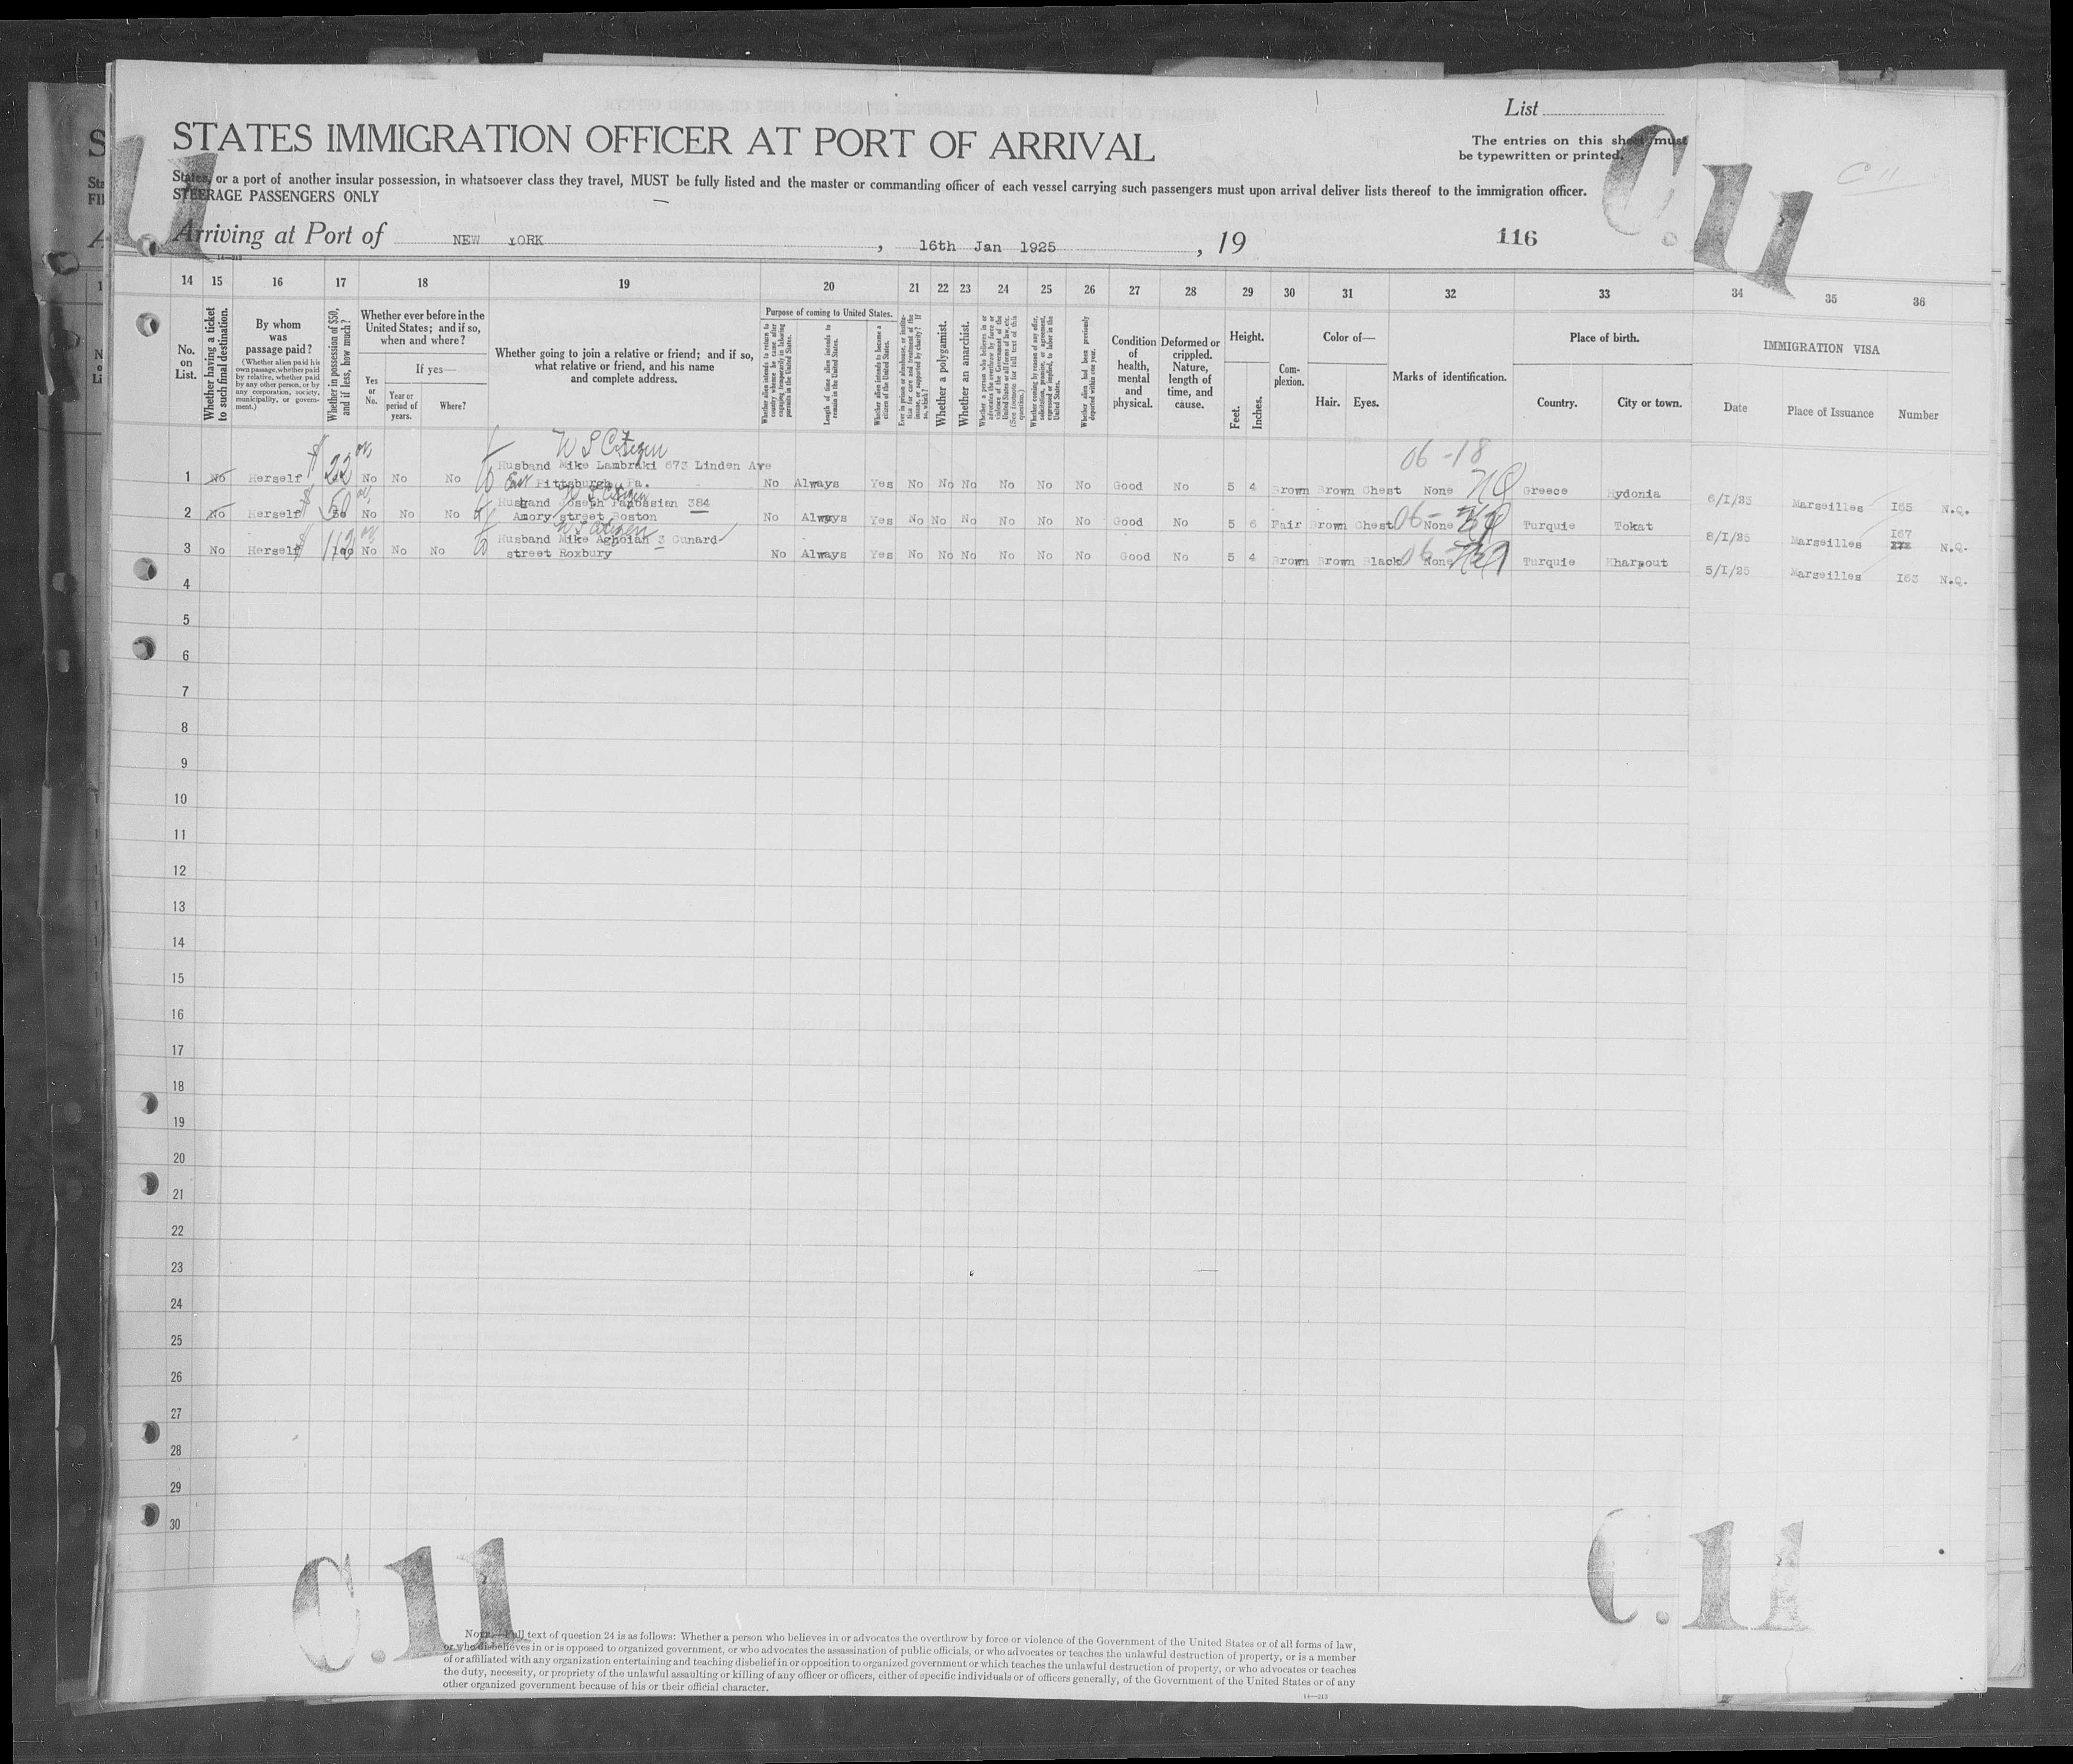 List
STATES IMMIGRATION OFFICER AT PORT OF ARRIVAL
The entries on this sheet must
be typewritten or printed.
States, or a port of another insular possession, in whatsoever class they travel, MUST be fully listed and the master or commanding officer of each vessel carrying such passengers must upon arrival deliver lists thereof to the immigration officer.
STEERAGE PASSENGERS ONLY
C 11
C.11
Arriving at Port of NEW YORK, 16th Jan 1925, 19
116
14 15 16 17 18 19 20 21 22 23 24 25 26 27 28 29 30 31 32 33 34 35 36
No. on List.
Whether having a ticket to such final destination.
By whom was passage paid?
(Whether alien paid his own passage, whether paid by relative, whether paid by any other person, or by any corporation, society, municipality, or government.)
Whether in possession of $50, and if less, how much?
Whether ever before in the United States; and if so, when and where?
Yes or No.
If yes—
Year or period of years.
Where?
Whether going to join a relative or friend; and if so, what relative or friend, and his name and complete address.
Purpose of coming to United States.
Whether alien intends to return to country whence he came after engaging temporarily in laboring pursuits in the United States.
Length of time alien intends to remain in the United States.
Whether alien intends to become a citizen of the United States.
Ever in prison or almshouse, or institution for care and treatment of the insane, or supported by charity? If so, which?
Whether a polygamist.
Whether an anarchist.
Whether a person who believes in or advocates the overthrow by force or violence of the Government of the United States or all forms of law, etc. (See footnote for full text of this question.)
Whether coming by reason of any offer, solicitation, promise, or agreement, expressed or implied, to labor in the United States.
Whether alien had been previously deported within one year.
Condition of health, mental and physical.
Deformed or crippled. Nature, length of time, and cause.
Height.
Feet.
Inches.
Complexion.
Color of—
Hair. Eyes.
Marks of identification.
Place of birth.
Country. City or town.
IMMIGRATION VISA
Date Place of Issuance Number
U S Citizen
06-18
1 No Herself $ 22 No No No Husband Mike Lambraki 673 Linden Ave No Always Yes No No No No No No Good No 5 4 Brown Brown Chest None NQ Greece Kydonia 6/I/25 Marseilles I65 N.Q.
East Pittsburgh, Pa.
U S Citizen
2 No Herself $ 50 No No No Husband Joseph Panossian 384 No Always Yes No No No No No No Good No 5 6 Fair Brown Chest None Turquie Tokat 8/I/25 Marseilles I67 N.Q.
Amory street Boston
U S Citizen
3 No Herself No No No Husband Mike Aghoian 3 Cunard No Always Yes No No No No No No Good No 5 4 Brown Brown Black None Turquie Kharpout 5/I/25 Marseilles I63 N.Q.
street Roxbury
4
5
6
7
8
9
10
11
12
13
14
15
16
17
18
19
20
21
22
23
24
25
26
27
28
29
30
C.11
C.11
NOTE.—Full text of question 24 is as follows: Whether a person who believes in or advocates the overthrow by force or violence of the Government of the United States or of all forms of law,
or who disbelieves in or is opposed to organized government, or who advocates the assassination of public officials, or who advocates or teaches the unlawful destruction of property, or is a member
of or affiliated with any organization entertaining and teaching disbelief in or opposition to organized government or which teaches the unlawful destruction of property, or who advocates or teaches
the duty, necessity, or propriety of the unlawful assaulting or killing of any officer or officers, either of specific individuals or of officers generally, of the Government of the United States or of any
other organized government because of his or their official character.
14—213